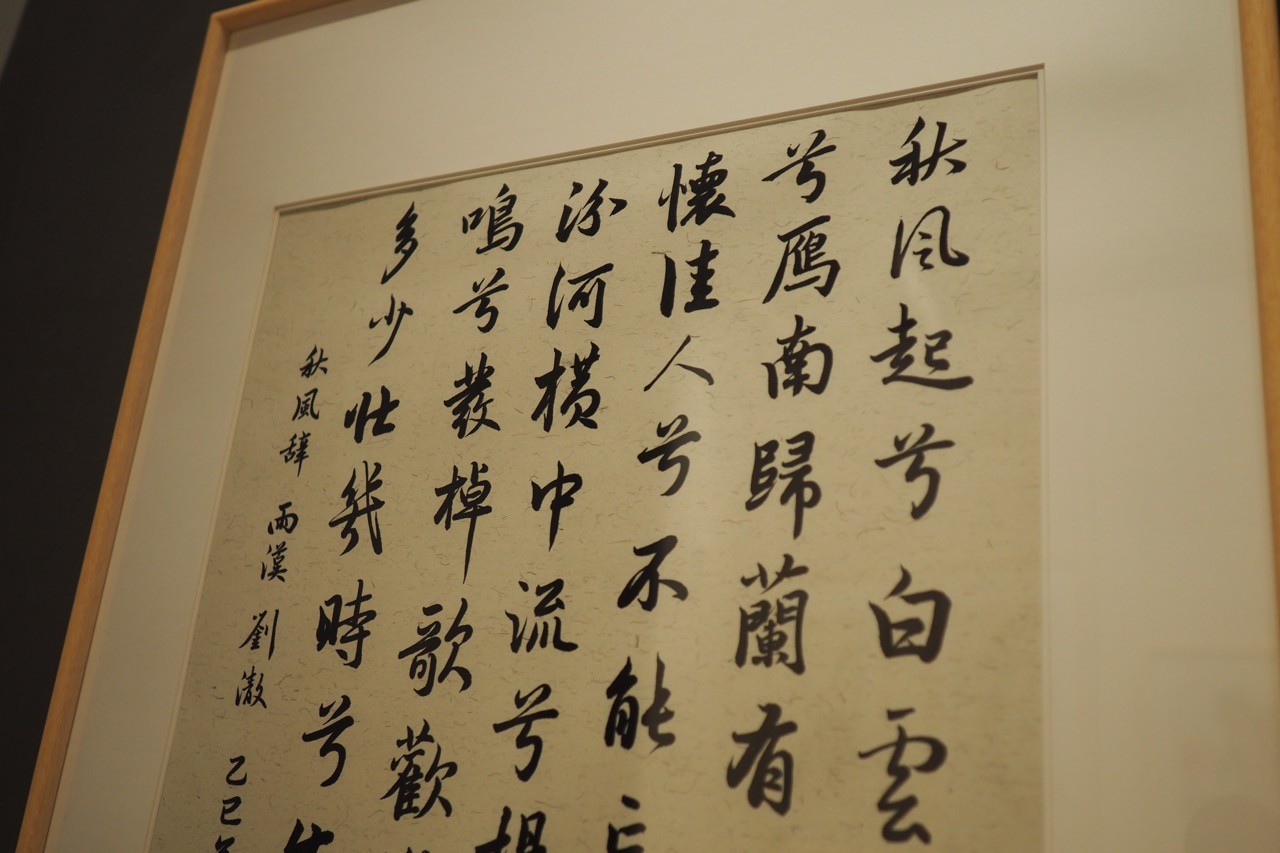 秋風起兮白雲
兮鴈南歸蘭有
懷佳人兮不能
汾河橫中流兮
鳴兮發棹歌歡
多少壯幾時兮
秋風辭 西漢 劉澈 乙巳